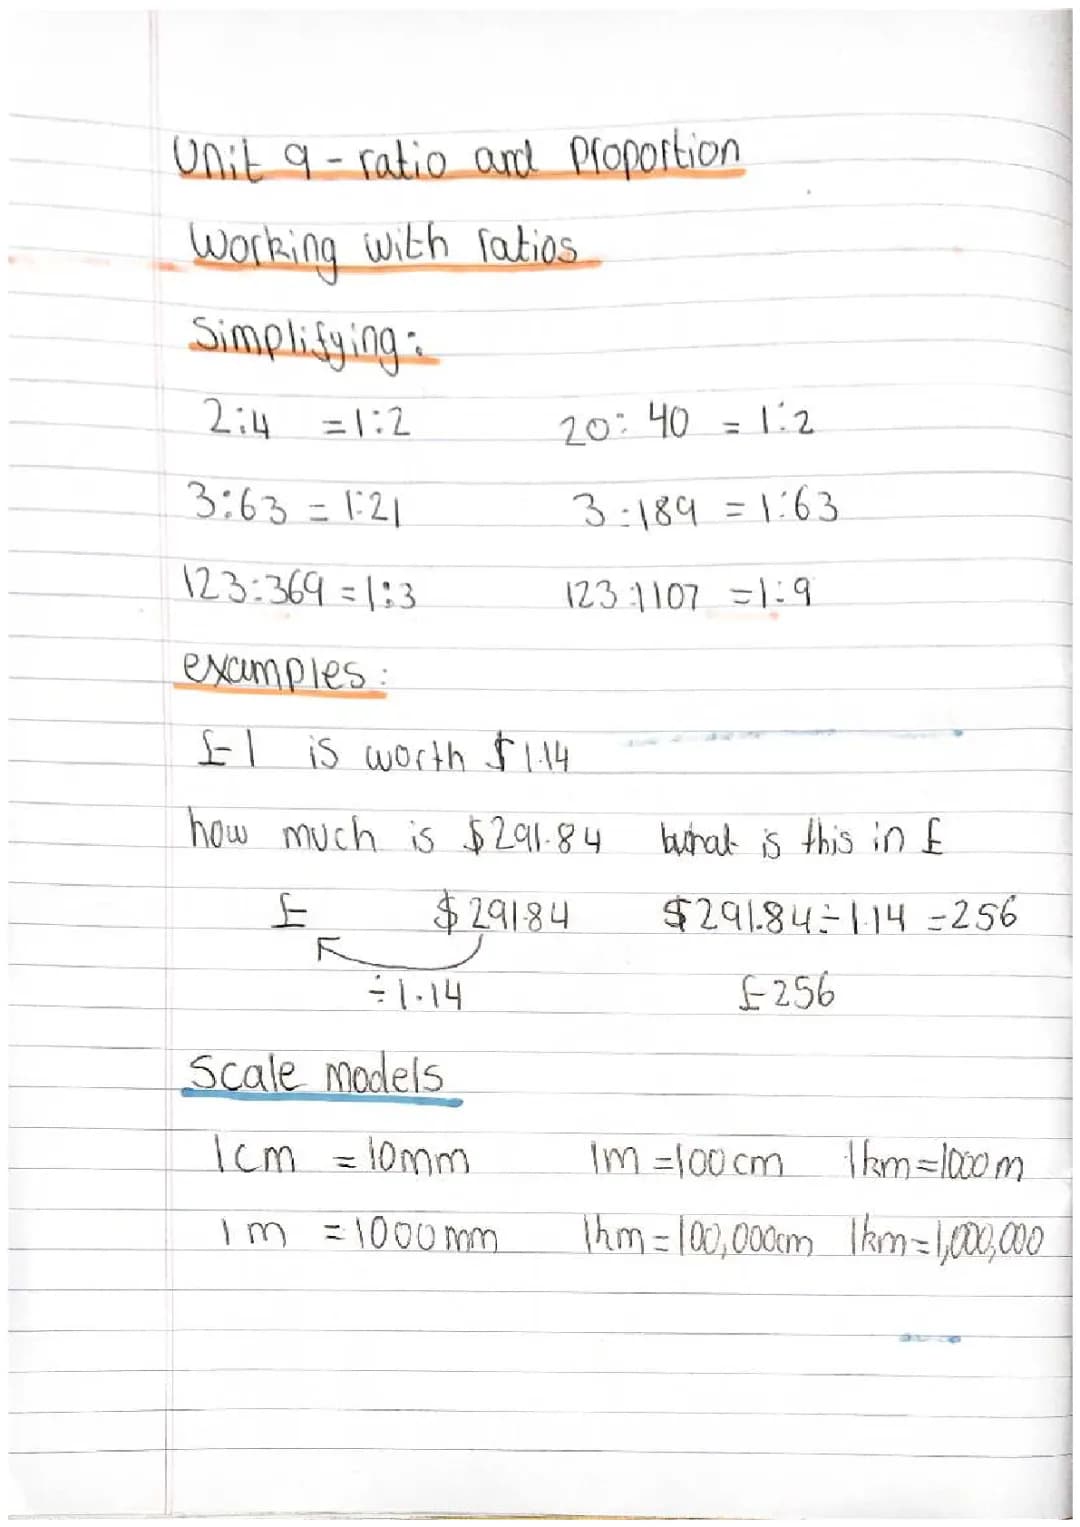 Unit 9 - ratio and proportion
Working with ratios
Simplifying:
2:4 = 1:2 20:40 = 1:2
3:63 = 1:21 3:189 = 1:63
123:369 = 1:3 123:1107 = 1:9
examples:
£1 is worth $1.14
how much is $291.84 what is this in £
£ $291.84 $291.84÷1.14 = 256
÷1.14 £256
Scale models
1cm = 10mm 1m = 100cm 1km = 1000m
1m = 1000mm 1km = 100,000cm 1km = 1,000,000